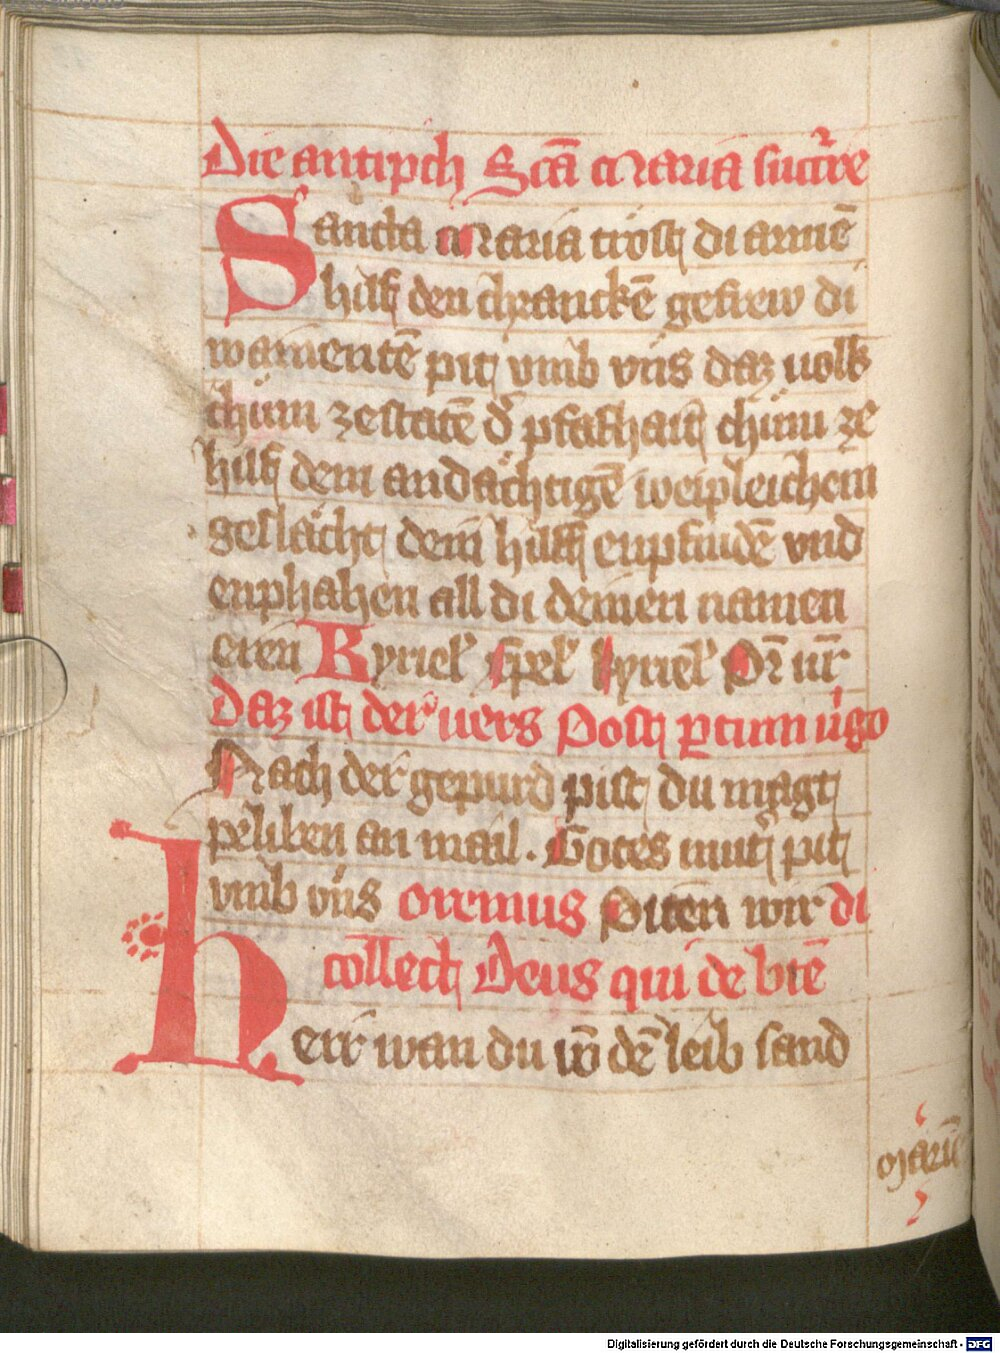 Die antiph Scā Maria sucᷓre
Sancta Maria trost di armē
hilf den chranckē gefrew di
wainentē pit vmb vns daz uolk
chüm ze statē d᷑ pfafhait chüm ze
hilf dem andåchtigē weipleichem
geslåcht dein hilff enpfindē vnd
enphahen all di deinen namen
eren Kyriel' xpel' kyriel' Pr̄ nr̄
Daz ist der uers Post ꝑtum uͥgo
Nach der gepurd pist du magt
peliben an mail. Gotes muter pit
vmb vns oremus Piten wir di
collect Deus qui de btē
Herr wan du vō dē leib sand
Marie
Digitalisierung gefördert durch die Deutsche Forschungsgemeinschaft - DFG